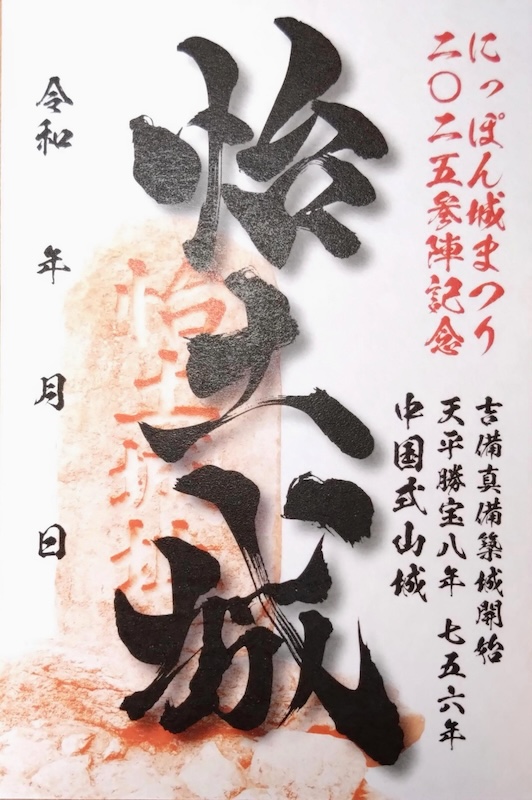 にっぽん城まつり
二〇二五参陣記念
吉備真備築城開始
天平勝宝八年 七五六年
中国式山城
怡土城
怡土城址
令和 年 月 日